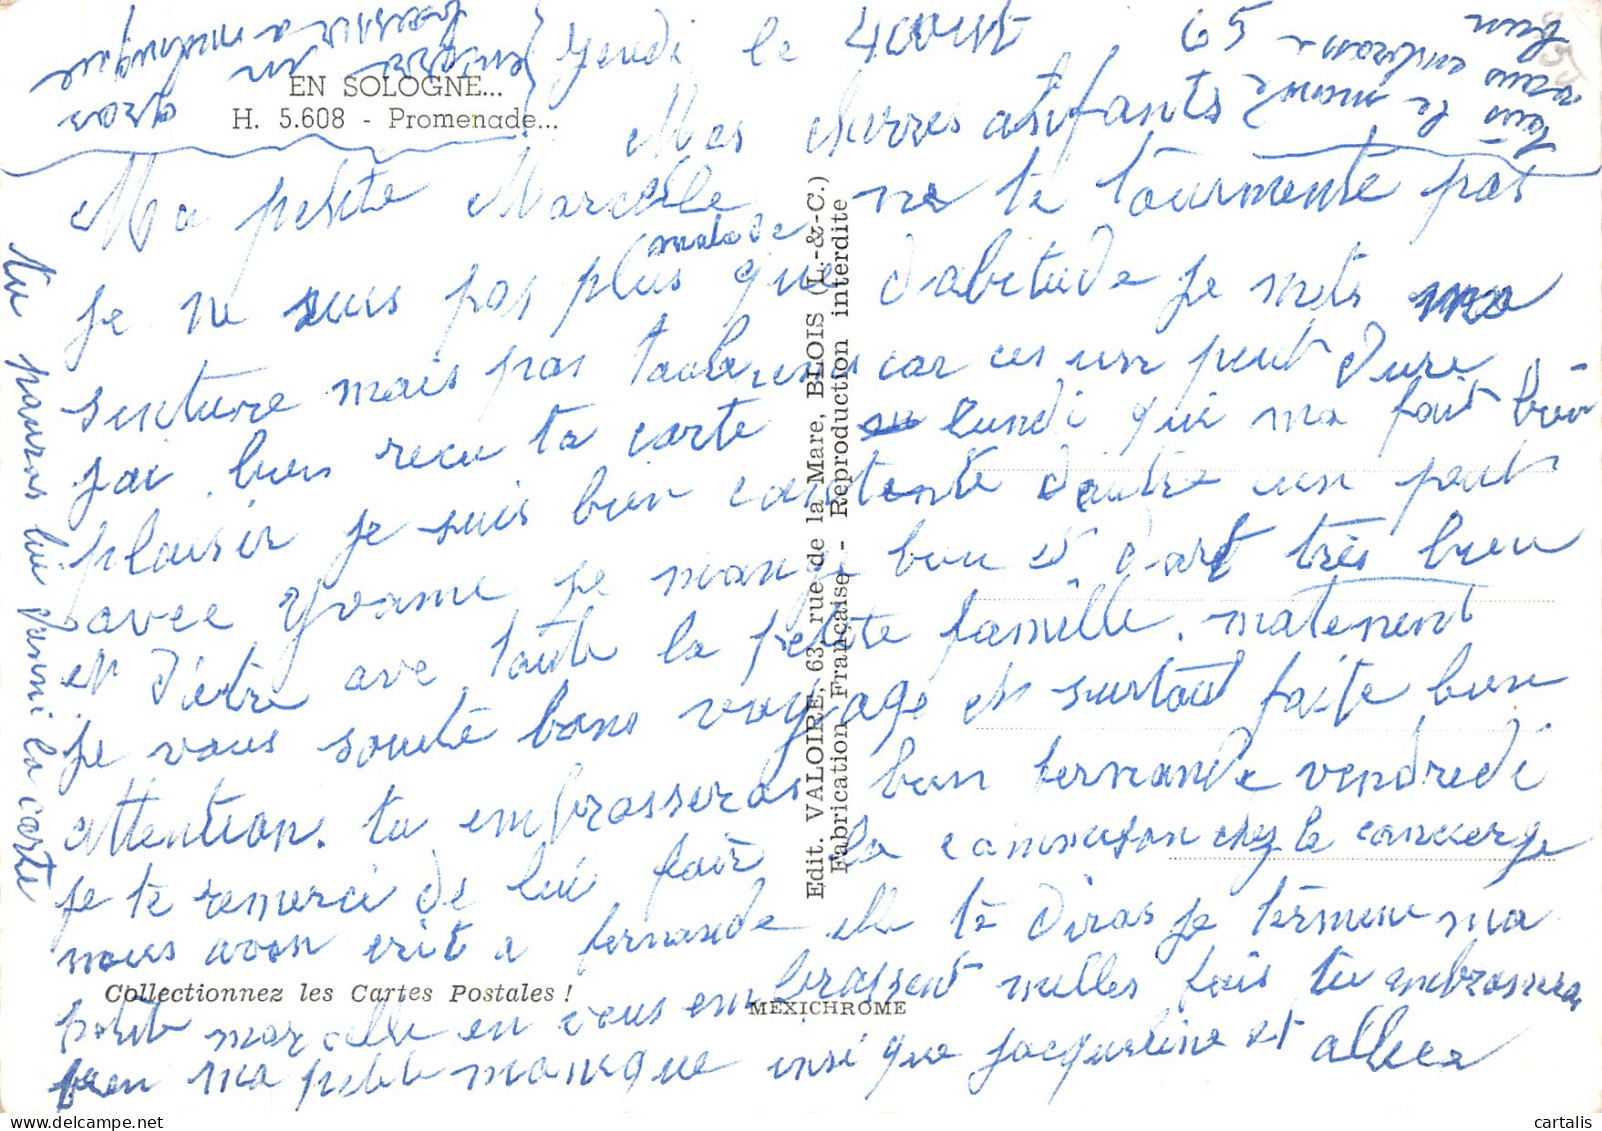 Jeudi le 4 aout 65
EN SOLOGNE...
H. 5.608 - Promenade...
Mes cherres anfants
Ma petite Marcelle ne te tourmente pas
malade
je ne suis pas plus que d'abitude je mets ma
sinture mais pas toute car ces un peut dure
jai bien recu ta carte lundi qui ma fait bien
plaisir je suis bien contente d'autre un peut
avec Yvonne je mange bien et dort très bien
et d'etre ave toute la petite famille. matenent
je vous souete bons voyage et surtout faite bien
attention. tu embrasseras bien fernande vendredi
je te remerci de lui fair la commison chez la concierge
nous avon erit a fernande elle te diras je termine ma
petite marcelle en vous embrassent milles fois tu embrassera
bien ma petite monique insi que jacqueline et
tu pouras lui the la carte
gros
a monique
tous le monde
vous embrasse
bien
Edit. VALOIRE, 63, rue de la Mare, BLOIS (L.-&-C.)
Fabrication Française - Reproduction interdite
Collectionnez les Cartes Postales !
MEXICHROME
cartalis
delcampe.net